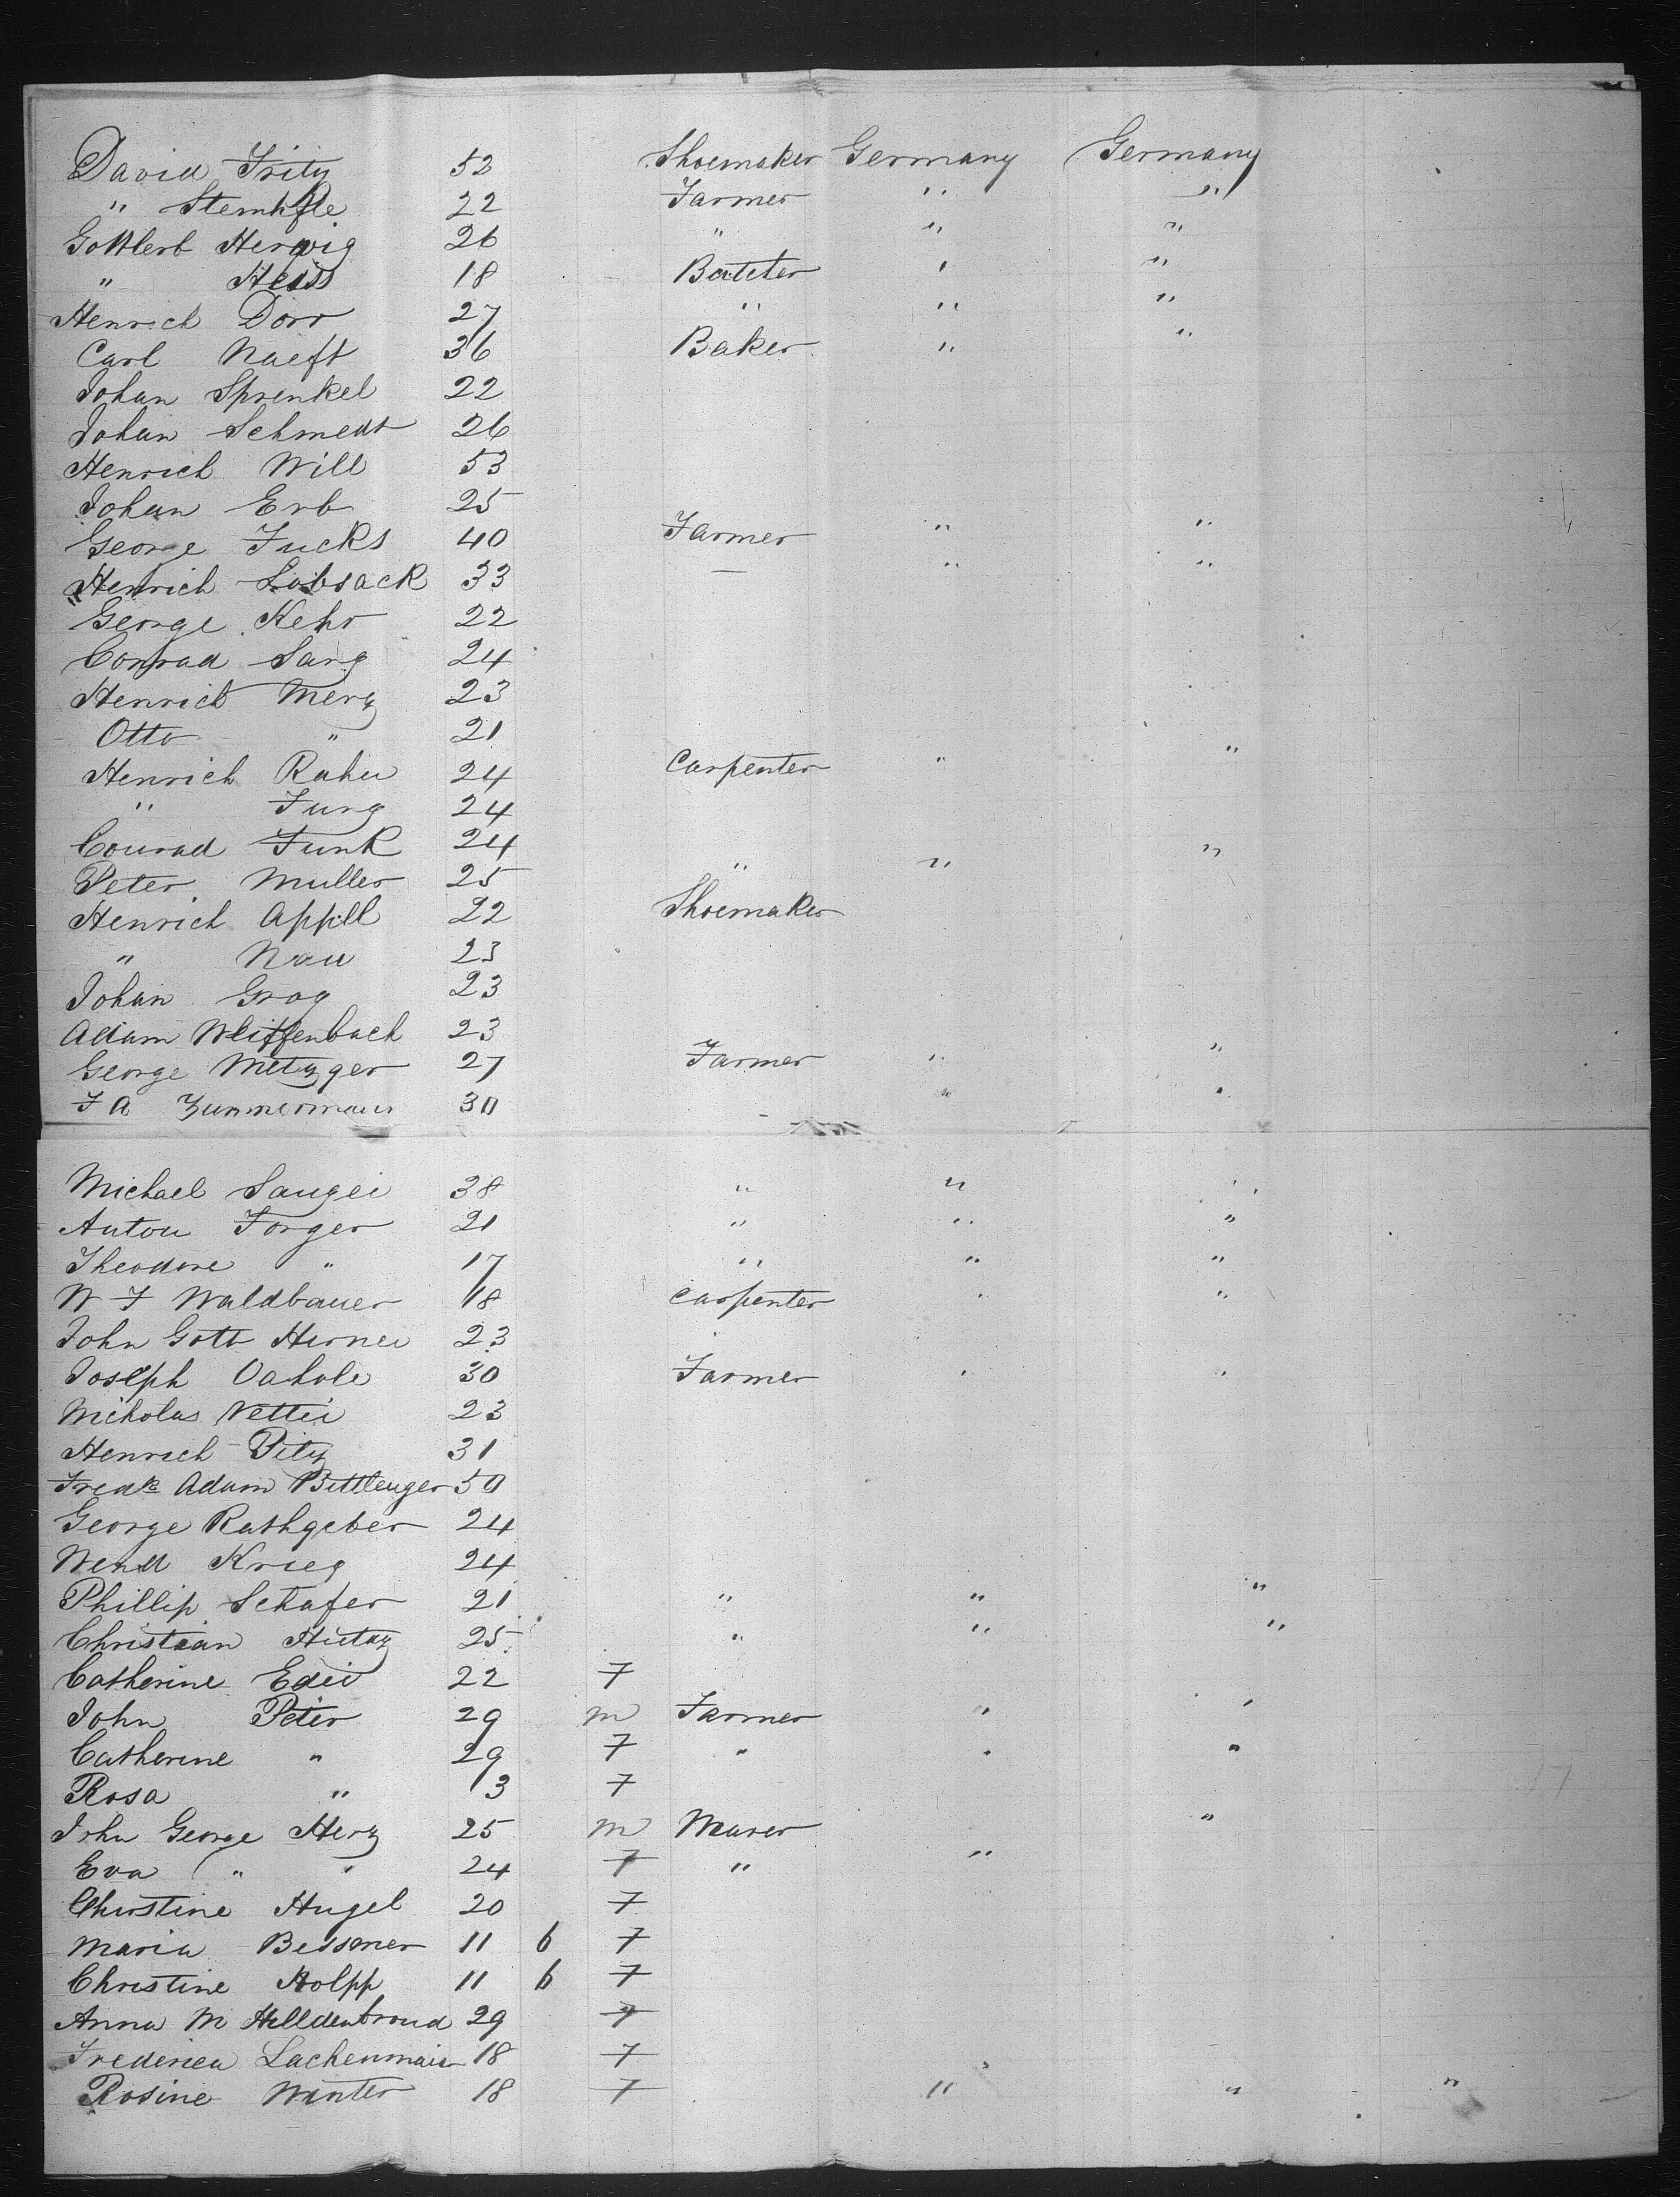 David Fritz 52 Shoemaker Germany Germany
" Stemhfle 22 Farmer " "
Gottlerb Herwig 26 " " "
" Heiss 18 Butcher " "
Henrich Dorr 27 " " "
Carl Naeft 36 Baker " "
Johan Sprenkel 22
Johan Schmedt 26
Henrich Will 53
Johan Erb 25
George Fucks 40 Farmer " "
Henrich Lobsack 33 — " "
George Kehr 22
Conrad Sang 24
Henrich Merz 23
Otto " 21
Henrich Rahn 24 Carpenter " "
" Jung 24
Conrad Funk 24
Peter Muller 25 " " "
Henrich Appell 22 Shoemaker
" Nau 23
Johan Grog 23
Adam Weiffenbach 23
George Metzger 27 Farmer " "
J A Zummermann 30 " "
Michael Saugei 38 " " "
Anton Forger 21 " " "
Theodore " 17 " " "
W F Waldbauer 18 Carpenter " "
John Gott Hirner 23
Joseph Oahole 30 Farmer " "
Nicholas Vetter 23
Henrich Pitz 31
Fredk Adam Bittlenger 50
George Rathgeber 24
Wend Krieg 24
Phillip Schafer 21 " " "
Christian Hutz 25 " " "
Catherine Edei 22 F
John Peter 29 m Farmer " "
Catherine " 29 F " " "
Rosa " 13 F
John George Herz 25 m Maser "
Eva " " 24 F " "
Christine Hugel 20 F
Maria Bessmer 11 6 F
Christine Holpp 11 6 F
Anna M Hilldenbrand 29 F
Frederica Lachenmaier 18 F "
Rosine Winter 18 F " " "